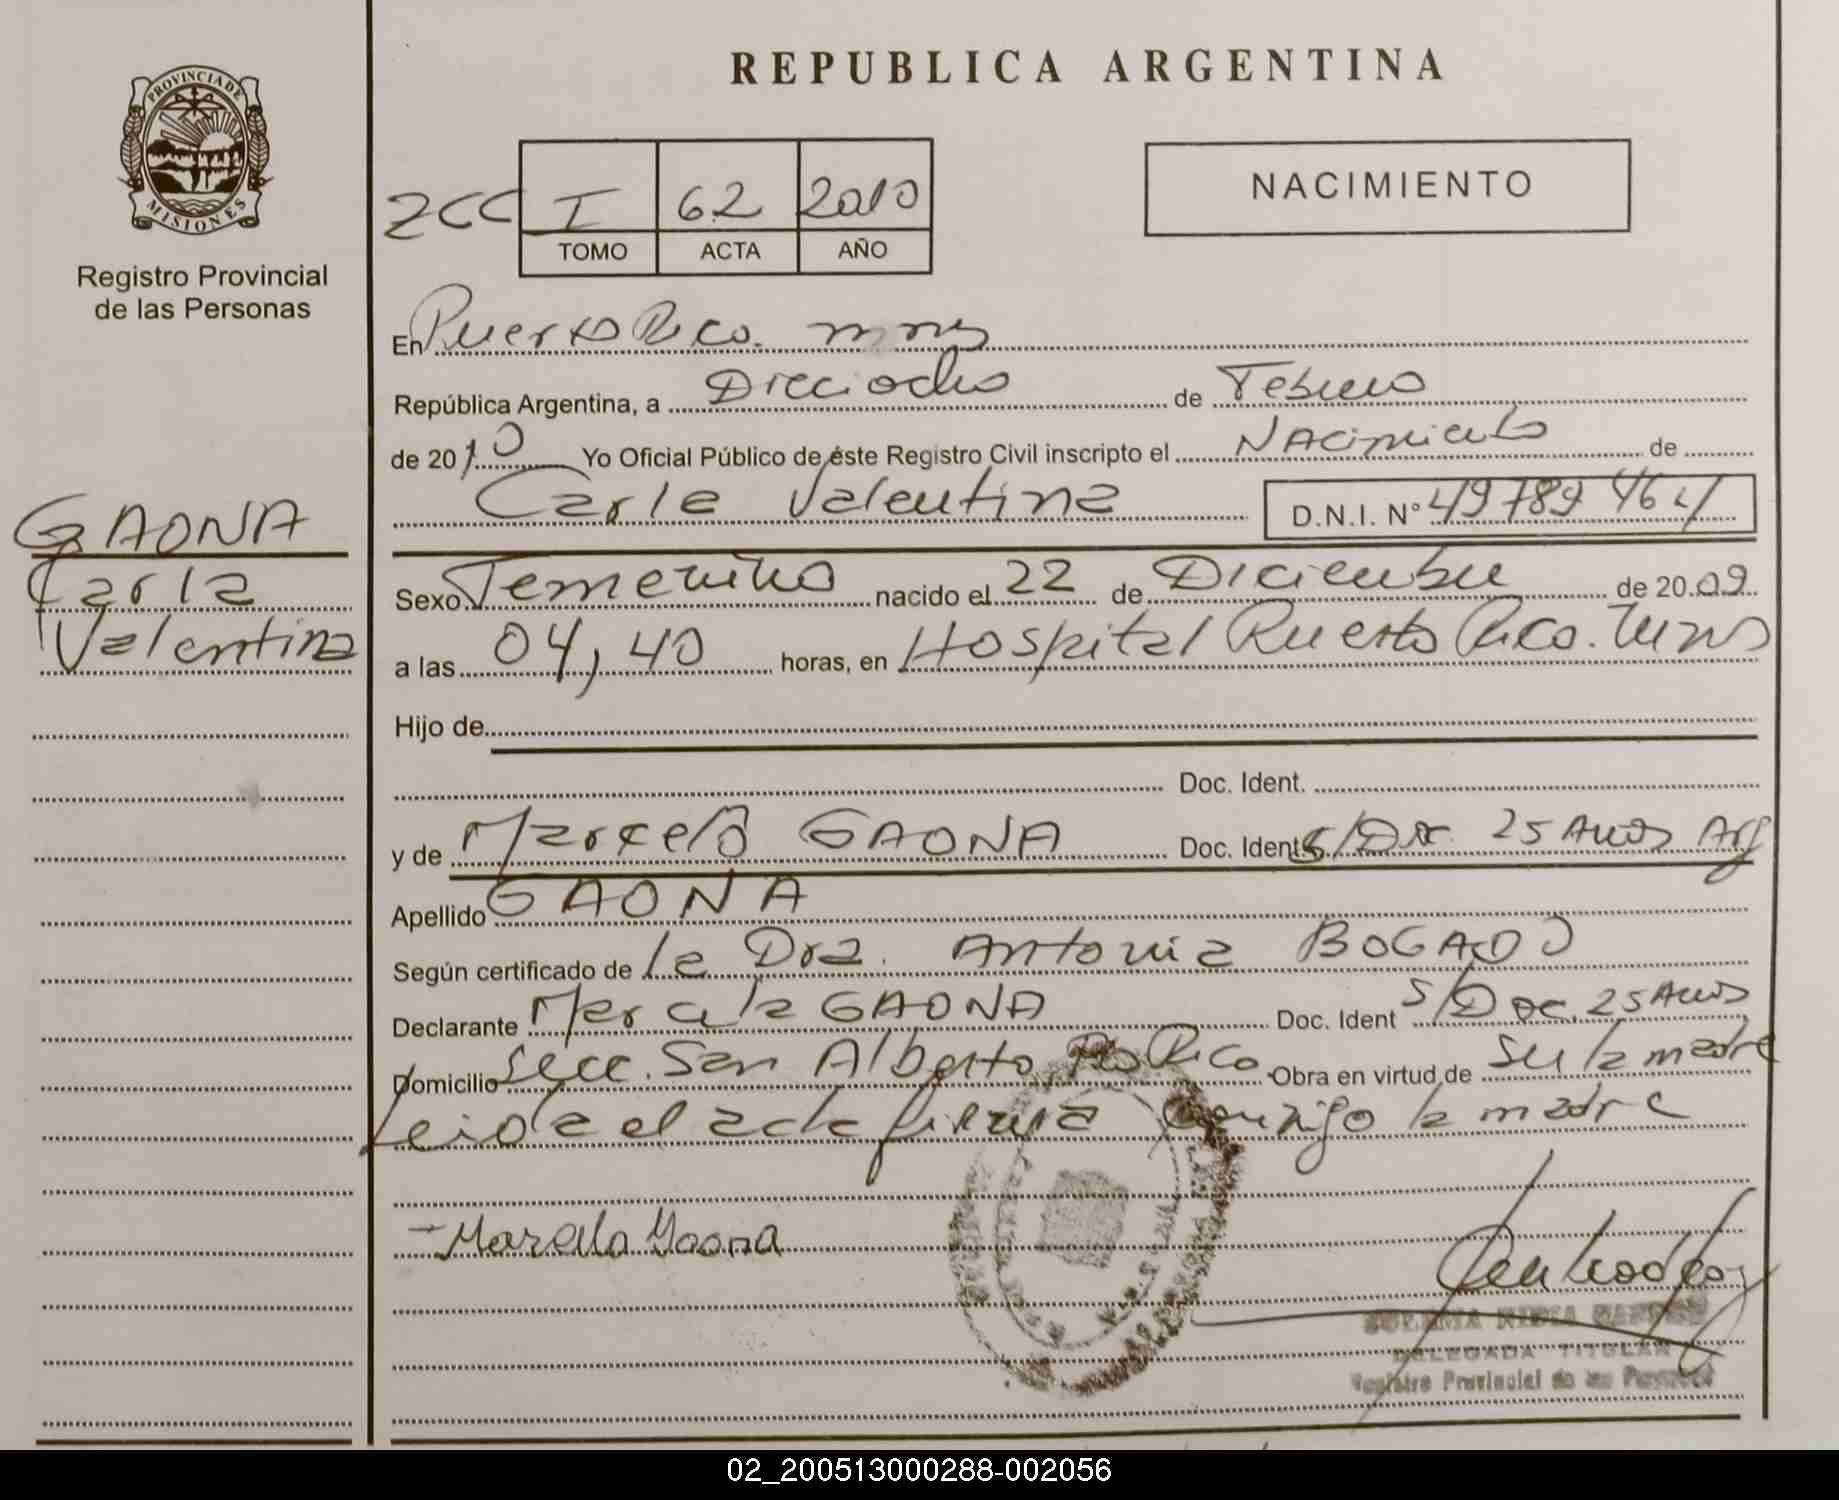 REPUBLICA ARGENTINA
PROVINCIA DE
MISIONES
Registro Provincial
de las Personas
NACIMIENTO
2CC I 62 2010
TOMO ACTA AÑO
En Puerto Rico. mns
República Argentina, a Dieciocho de Febrero
de 2010 Yo Oficial Público de éste Registro Civil inscripto el Nacimiento de
Carla Valentina D.N.I. N° 49789464
GAONA
Carla
Valentina
Sexo Femenino nacido el 22 de Diciembre de 2009
a las 04,40 horas, en Hospital Puerto Rico. Mns
Hijo de
Doc. Ident.
y de Marcela GAONA Doc. Ident S/Doc. 25 Años Arg
Apellido GAONA
Según certificado de la Dra. Antonia BOGADO
Declarante Marcela GAONA Doc. Ident S/Doc. 25 Años
Domicilio Secc. San Alberto, Pto Rico. Obra en virtud de Ser la madre
Leida el acta firma conmigo la madre
Marcela Gaona
DELEGADA TITULAR
Registro Provincial de las Personas
02_200513000288-002056